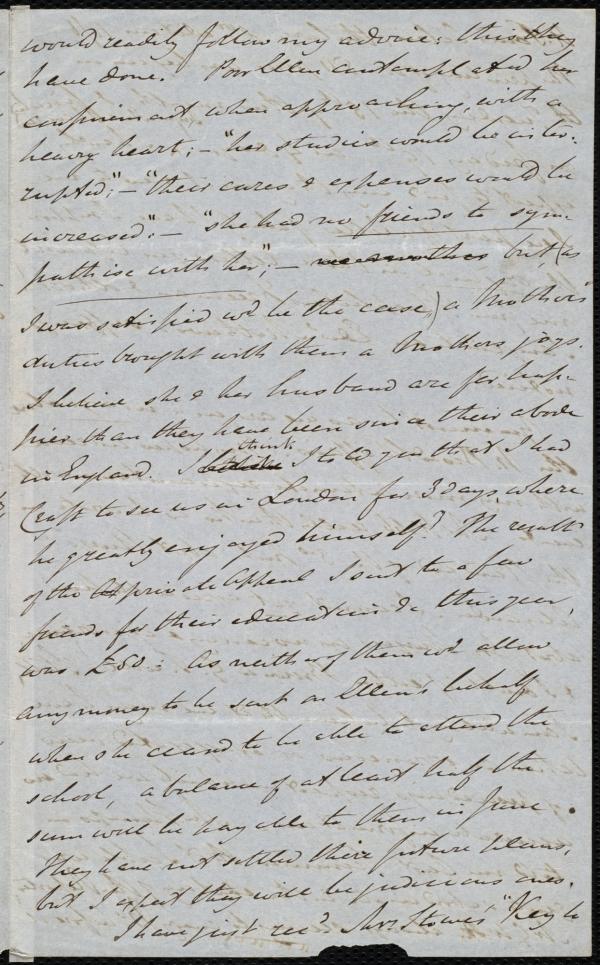 would readily follow my advice: this they
have done. Poor Ellen contemplated her
confinement when approaching, with a
heavy heart; – "her studies would be inter-
rupted"; – "their cares & expenses would be
increased": – "she had no friends to sym-
pathise with her"; – but, (as
I was satisfied wd be the case,) a Mother's
duties brought with them a Mothers joys.
I believe she & her husband are far hap-
pier than they have been since their abode
in England. I think I told you that I had
Craft to see us in London for 3 days, where
he greatly enjoyed himself? The result
of the private Appeal I sent to a few
friends for their education &c this year,
was £50: As neither of them wd allow
any money to be sent on Ellen's behalf
when she ceased to be able to attend the
school, a balance of at least half the
sum will be payable to them in June.
They have not settled their future plans,
but I expect they will be judicious ones.
I have just recd Mrs Stowe's "Key to